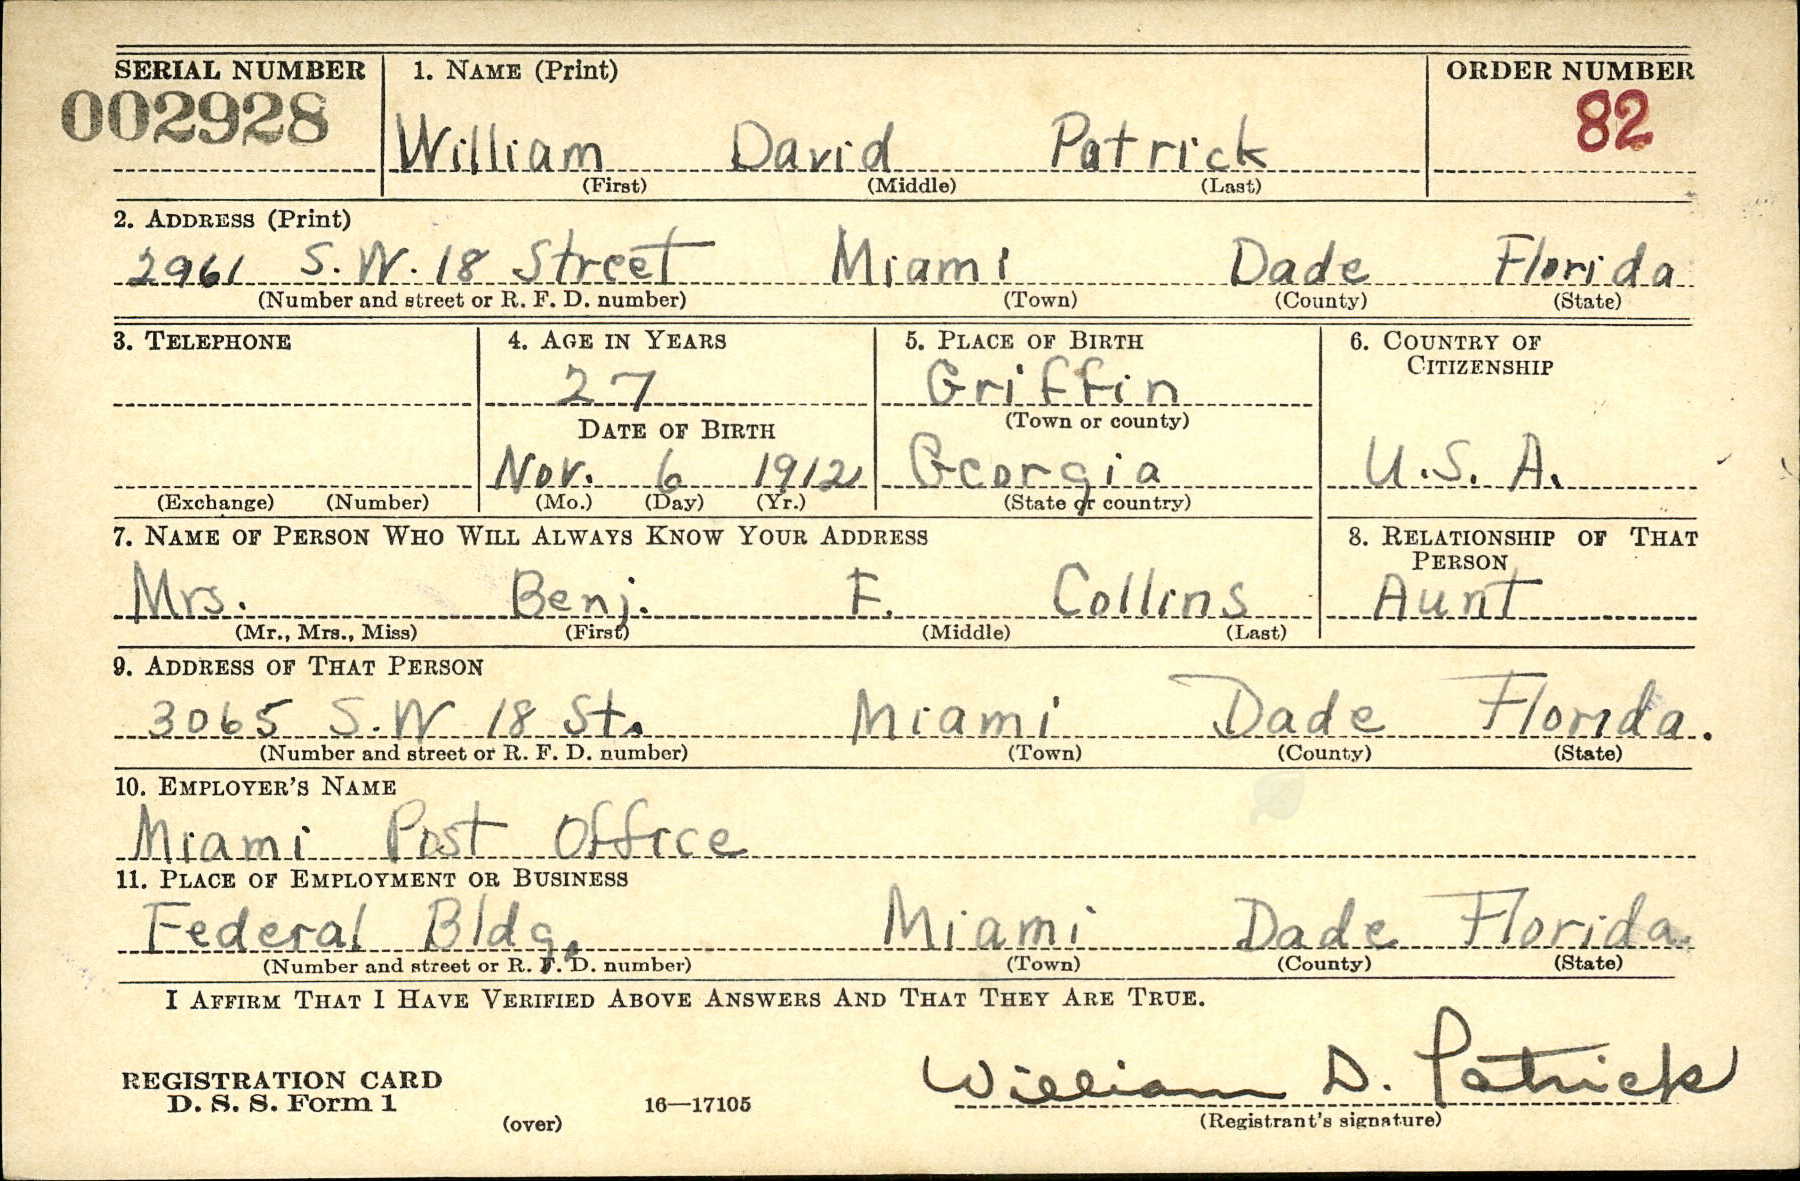 SERIAL NUMBER 1. NAME (Print) ORDER NUMBER
002928 William David Patrick 82
(First) (Middle) (Last)
2. ADDRESS (Print)
2961 S.W. 18 Street Miami Dade Florida
(Number and street or R. F. D. number) (Town) (County) (State)
3. TELEPHONE 4. AGE IN YEARS 5. PLACE OF BIRTH 6. COUNTRY OF CITIZENSHIP
27 Griffin
DATE OF BIRTH (Town or county)
Nov. 6 1912 Georgia U.S. A.
(Exchange) (Number) (Mo.) (Day) (Yr.) (State or country)
7. NAME OF PERSON WHO WILL ALWAYS KNOW YOUR ADDRESS 8. RELATIONSHIP OF THAT PERSON
Mrs. Benj. F. Collins Aunt
(Mr., Mrs., Miss) (First) (Middle) (Last)
9. ADDRESS OF THAT PERSON
3065 S.W 18 St. Miami Dade Florida.
(Number and street or R. F. D. number) (Town) (County) (State)
10. EMPLOYER'S NAME
Miami Post Office
11. PLACE OF EMPLOYMENT OR BUSINESS
Federal Bldg. Miami Dade Florida.
(Number and street or R. F. D. number) (Town) (County) (State)
I AFFIRM THAT I HAVE VERIFIED ABOVE ANSWERS AND THAT THEY ARE TRUE.
REGISTRATION CARD William D. Patrick
D. S. S. Form 1 16—17105
(over) (Registrant's signature)